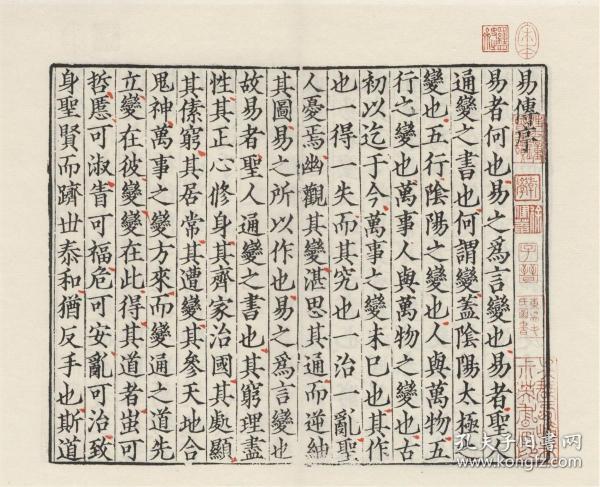 宋本
易傳序
子晉
易者何也易之爲言變也易者聖人
通變之書也何謂變蓋陰陽太極之
變也五行陰陽之變也人與萬物五
行之變也萬事人與萬物之變也古
初以迄于今萬事之變未已也其作
也一得一失而其究也一治一亂聖
人憂焉幽觀其變湛思其通而逆紬
其圖易之所以作也易之爲言變也
故易者聖人通變之書也其窮理盡
性其正心修身其齊家治國其處顯
其傃窮其居常其遭變其參天地合
鬼神萬事之變方來而變通之道先
立變在彼變變在此得其道者蚩可
哲慝可淑眚可福危可安亂可治致
身聖賢而躋丗泰和猶反手也斯道
孔夫子旧书网